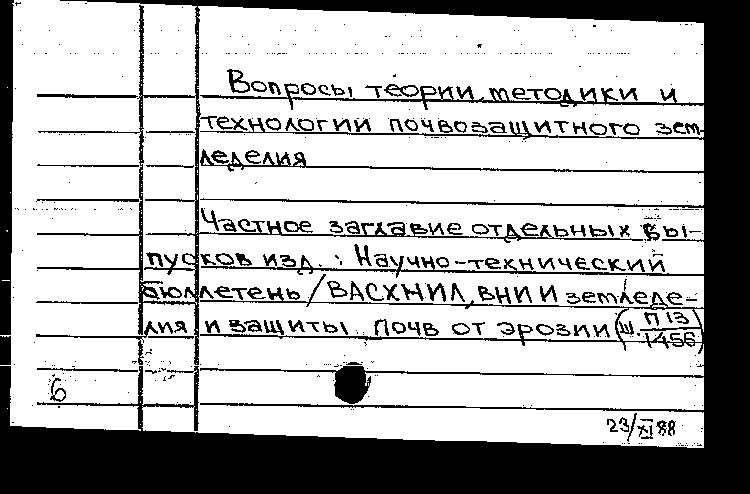 Вопросы теории, методики и
технологии почвозащитного зем-
леделия
Частное заглавие отдельных вы-
пусков изд.: Научно-технический
бюллетень/ВАСХНИЛ, ВНИИ земледе-
лия и защиты почв от эрозии (Ш. П13/1456)
6
23/XI 88